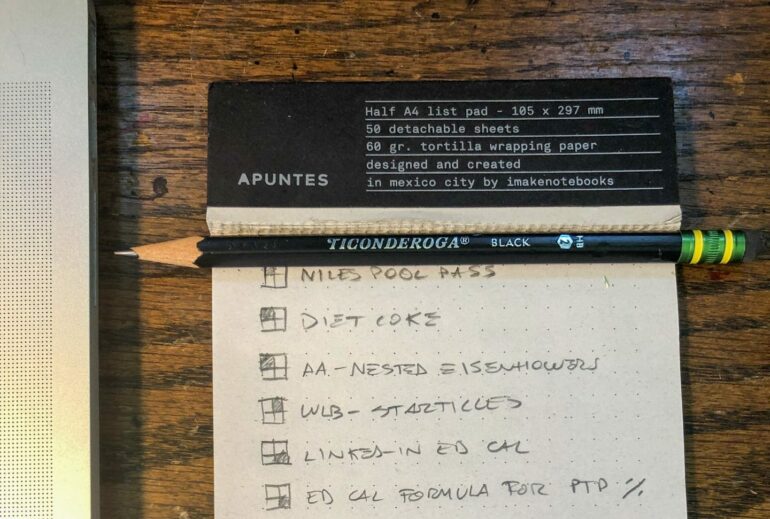 Half A4 list pad - 105 x 297 mm
50 detachable sheets
60 gr. tortilla wrapping paper
designed and created
APUNTES in mexico city by imakenotebooks
TICONDEROGA® BLACK 2 HB
NILES POOL PASS
DIET COKE
AA-NESTED EISENHOWERS
WLB-STARTICLES
LINKED-IN ED CAL
ED CAL FORMULA FOR PTD %